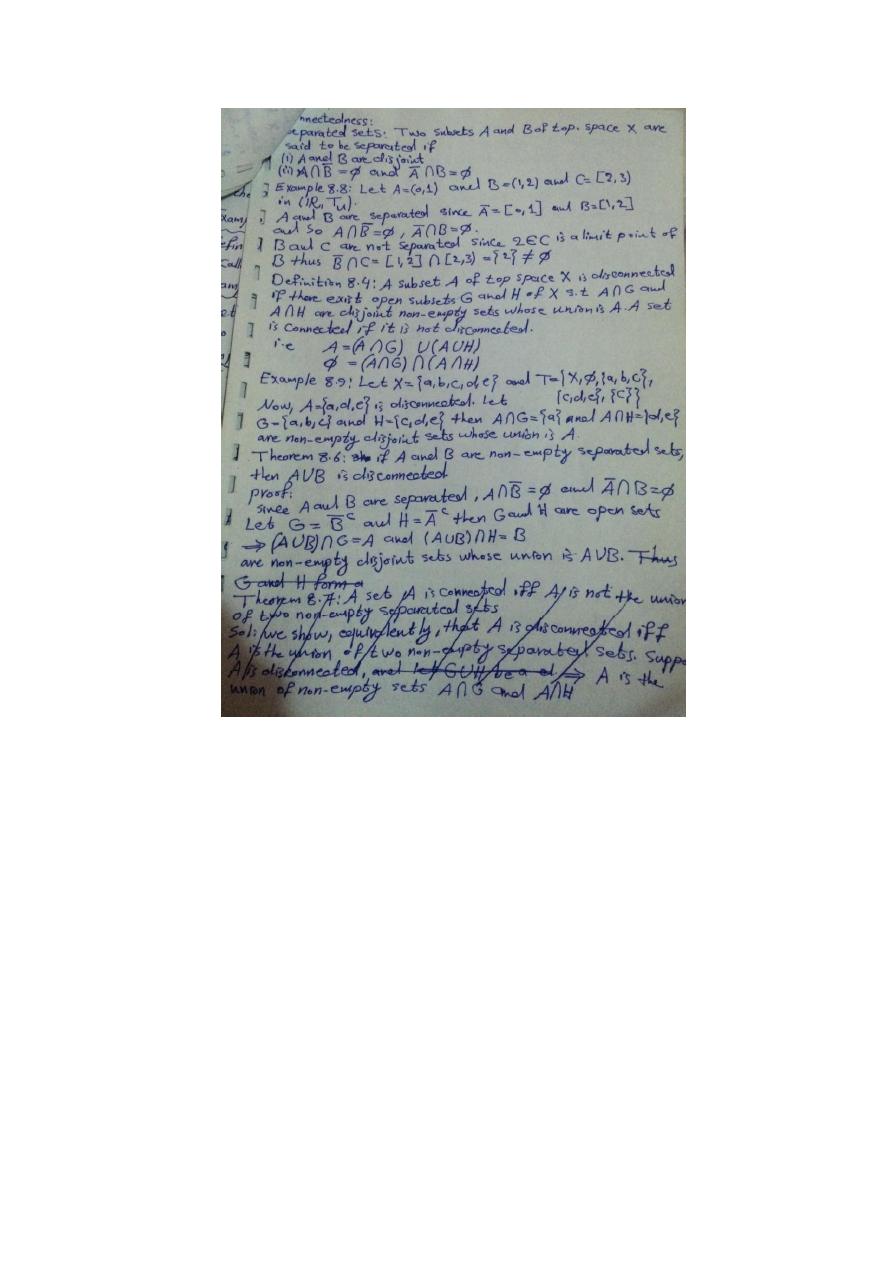 nnectedness:
eparated sets: Two subsets A and B of top. space X are
said to be separated if
(i) A and B are disjoint
(ii) A∩B̅ = ∅ and A̅∩B = ∅
Example 8.8: Let A=(0,1) and B=(1,2) and C=[2,3)
in (IR, Tu).
A and B are separated since A̅=[0,1] and B=[1,2]
and so A∩B̅=∅, A̅∩B=∅.
B and C are not separated since 2∈C is a limit point of
B thus B̅∩C=[1,2]∩[2,3)={2}≠∅
Definition 8.4: A subset A of top space X is disconnected
if there exist open subsets G and H of X s.t A∩G and
A∩H are disjoint non-empty sets whose union is A. A set
is connected if it is not disconnected.
i.e A=(A∩G) ∪(A∪H)
∅ =(A∩G)∩(A∩H)
Example 8.9: Let X={a,b,c,d,e} and T={X,∅,{a,b,c},
{c,d,e},{c}}
Now, A={a,d,e} is disconnected. Let
G={a,b,c} and H={c,d,e} then A∩G={a} and A∩H={d,e}
are non-empty disjoint sets whose union is A.
Theorem 8.6: if A and B are non-empty separated sets,
then A∪B is disconnected
proof:
since A and B are separated, A∩B̅=∅ and A̅∩B=∅
Let G = B̅ᶜ and H = A̅ᶜ then G and H are open sets
⇒ (A∪B)∩G=A and (A∪B)∩H=B
are non-empty disjoint sets whose union is A∪B. Thus
G and H form a
Theorem 8.7: A set A is connected iff A is not the union
of two non-empty separated sets
Sol: we show, equivalently, that A is disconnected iff
A is the union of two non-empty separated sets. Suppo
A is disconnected, and let G∪H be a d ⇒ A is the
union of non-empty sets A∩G and A∩H
the
xam
fin
call
am
et